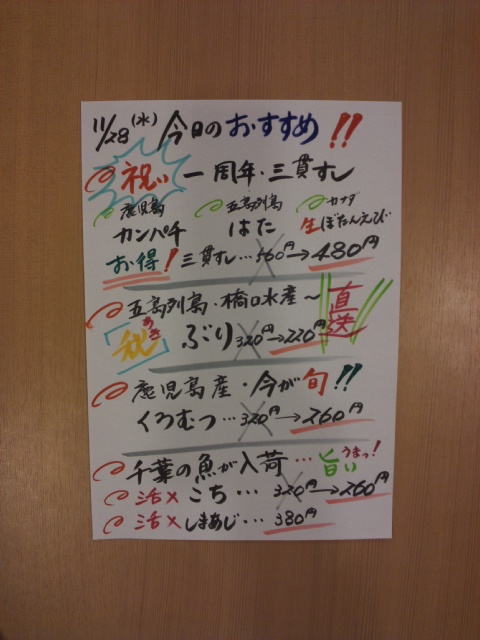 11/28(水) 今日のおすすめ!!
祝い 一周年・三貫すし
鹿児島 五島列島 カナダ
カンパチ はた 生ぼたんえび
お得! 三貫すし…560円→480円
五島列島・橋口水産～直送
あき
秋 ぶり 320円→220円
鹿児島産・今が旬!!
くろむつ…320円→260円
千葉の魚が入荷…旨い うまっ!
活〆 こち…320円→260円
活〆 しまあじ…380円